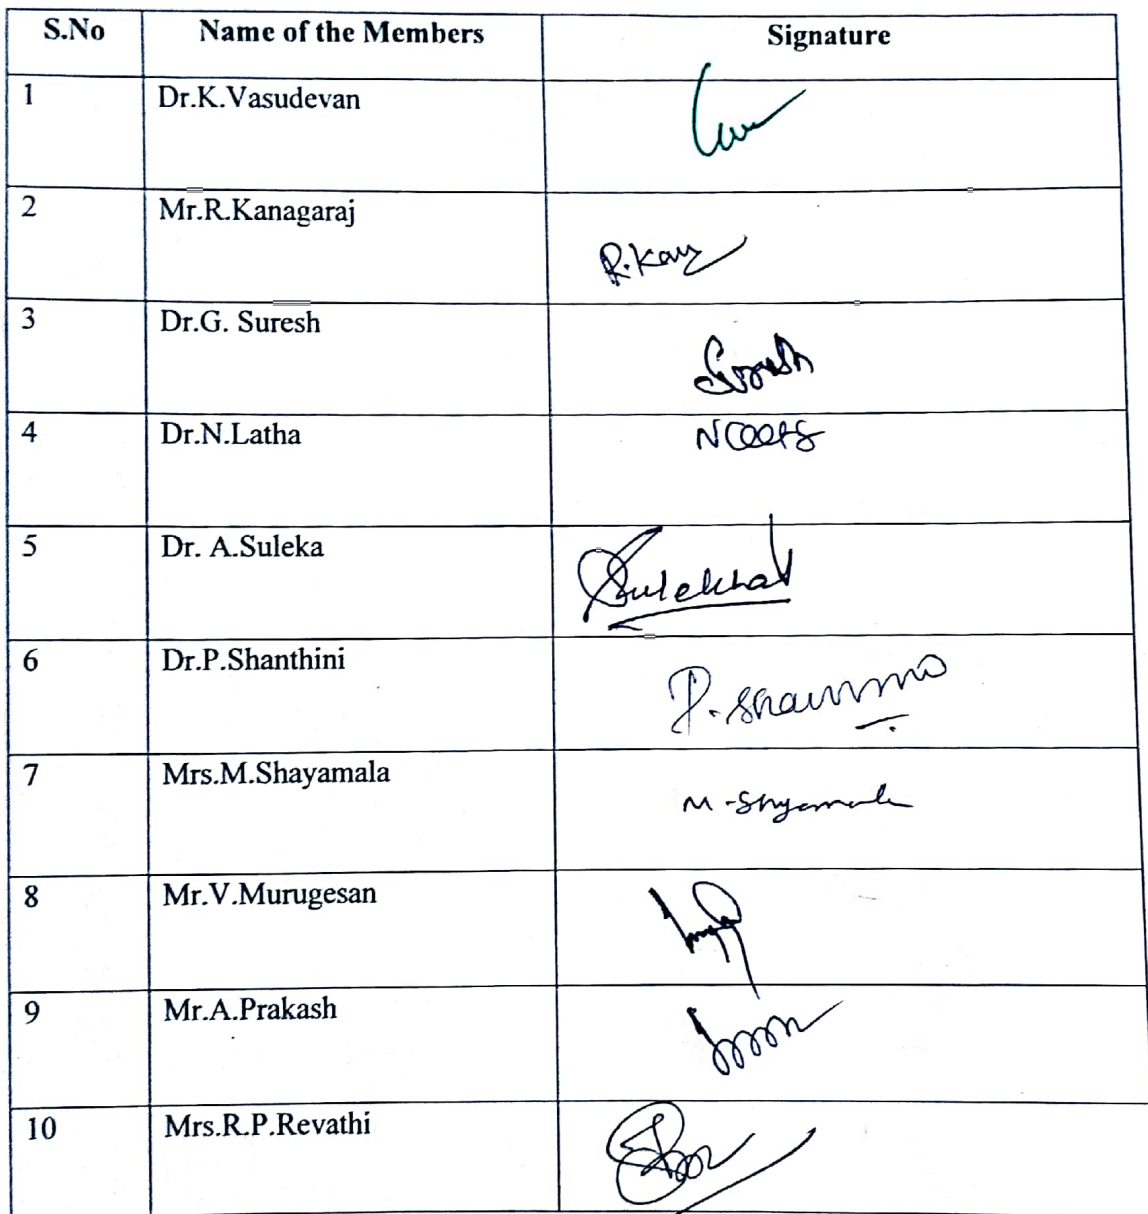 S.No Name of the Members Signature
1 Dr.K.Vasudevan
2 Mr.R.Kanagaraj
R.Kan
3 Dr.G. Suresh
Suresh
4 Dr.N.Latha
5 Dr. A.Suleka
Sulekha
6 Dr.P.Shanthini
7 Mrs.M.Shayamala
M-Shyamala
8 Mr.V.Murugesan
9 Mr.A.Prakash
10 Mrs.R.P.Revathi